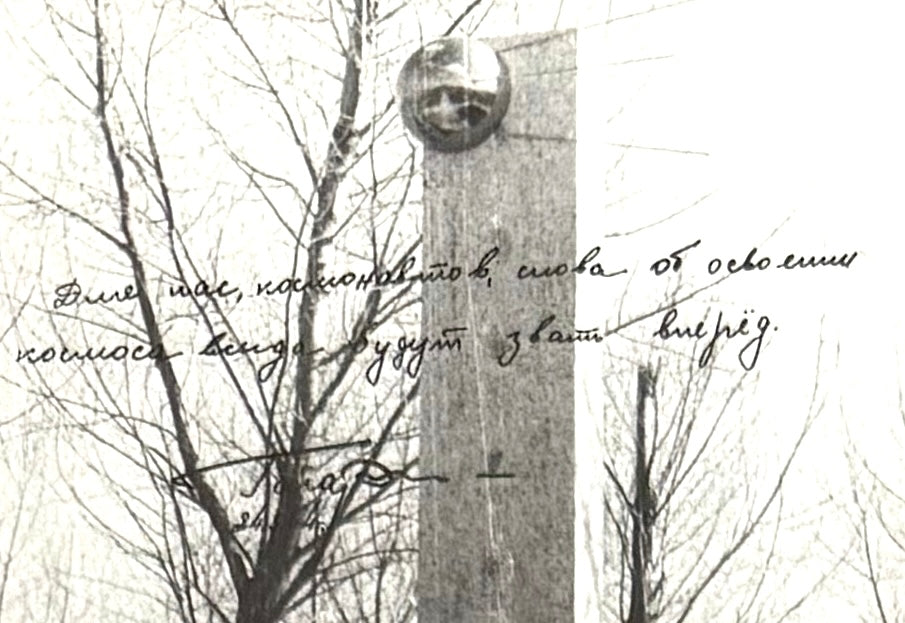 Для нас, космонавтов, слова об освоении
космоса всегда будут звать вперёд.